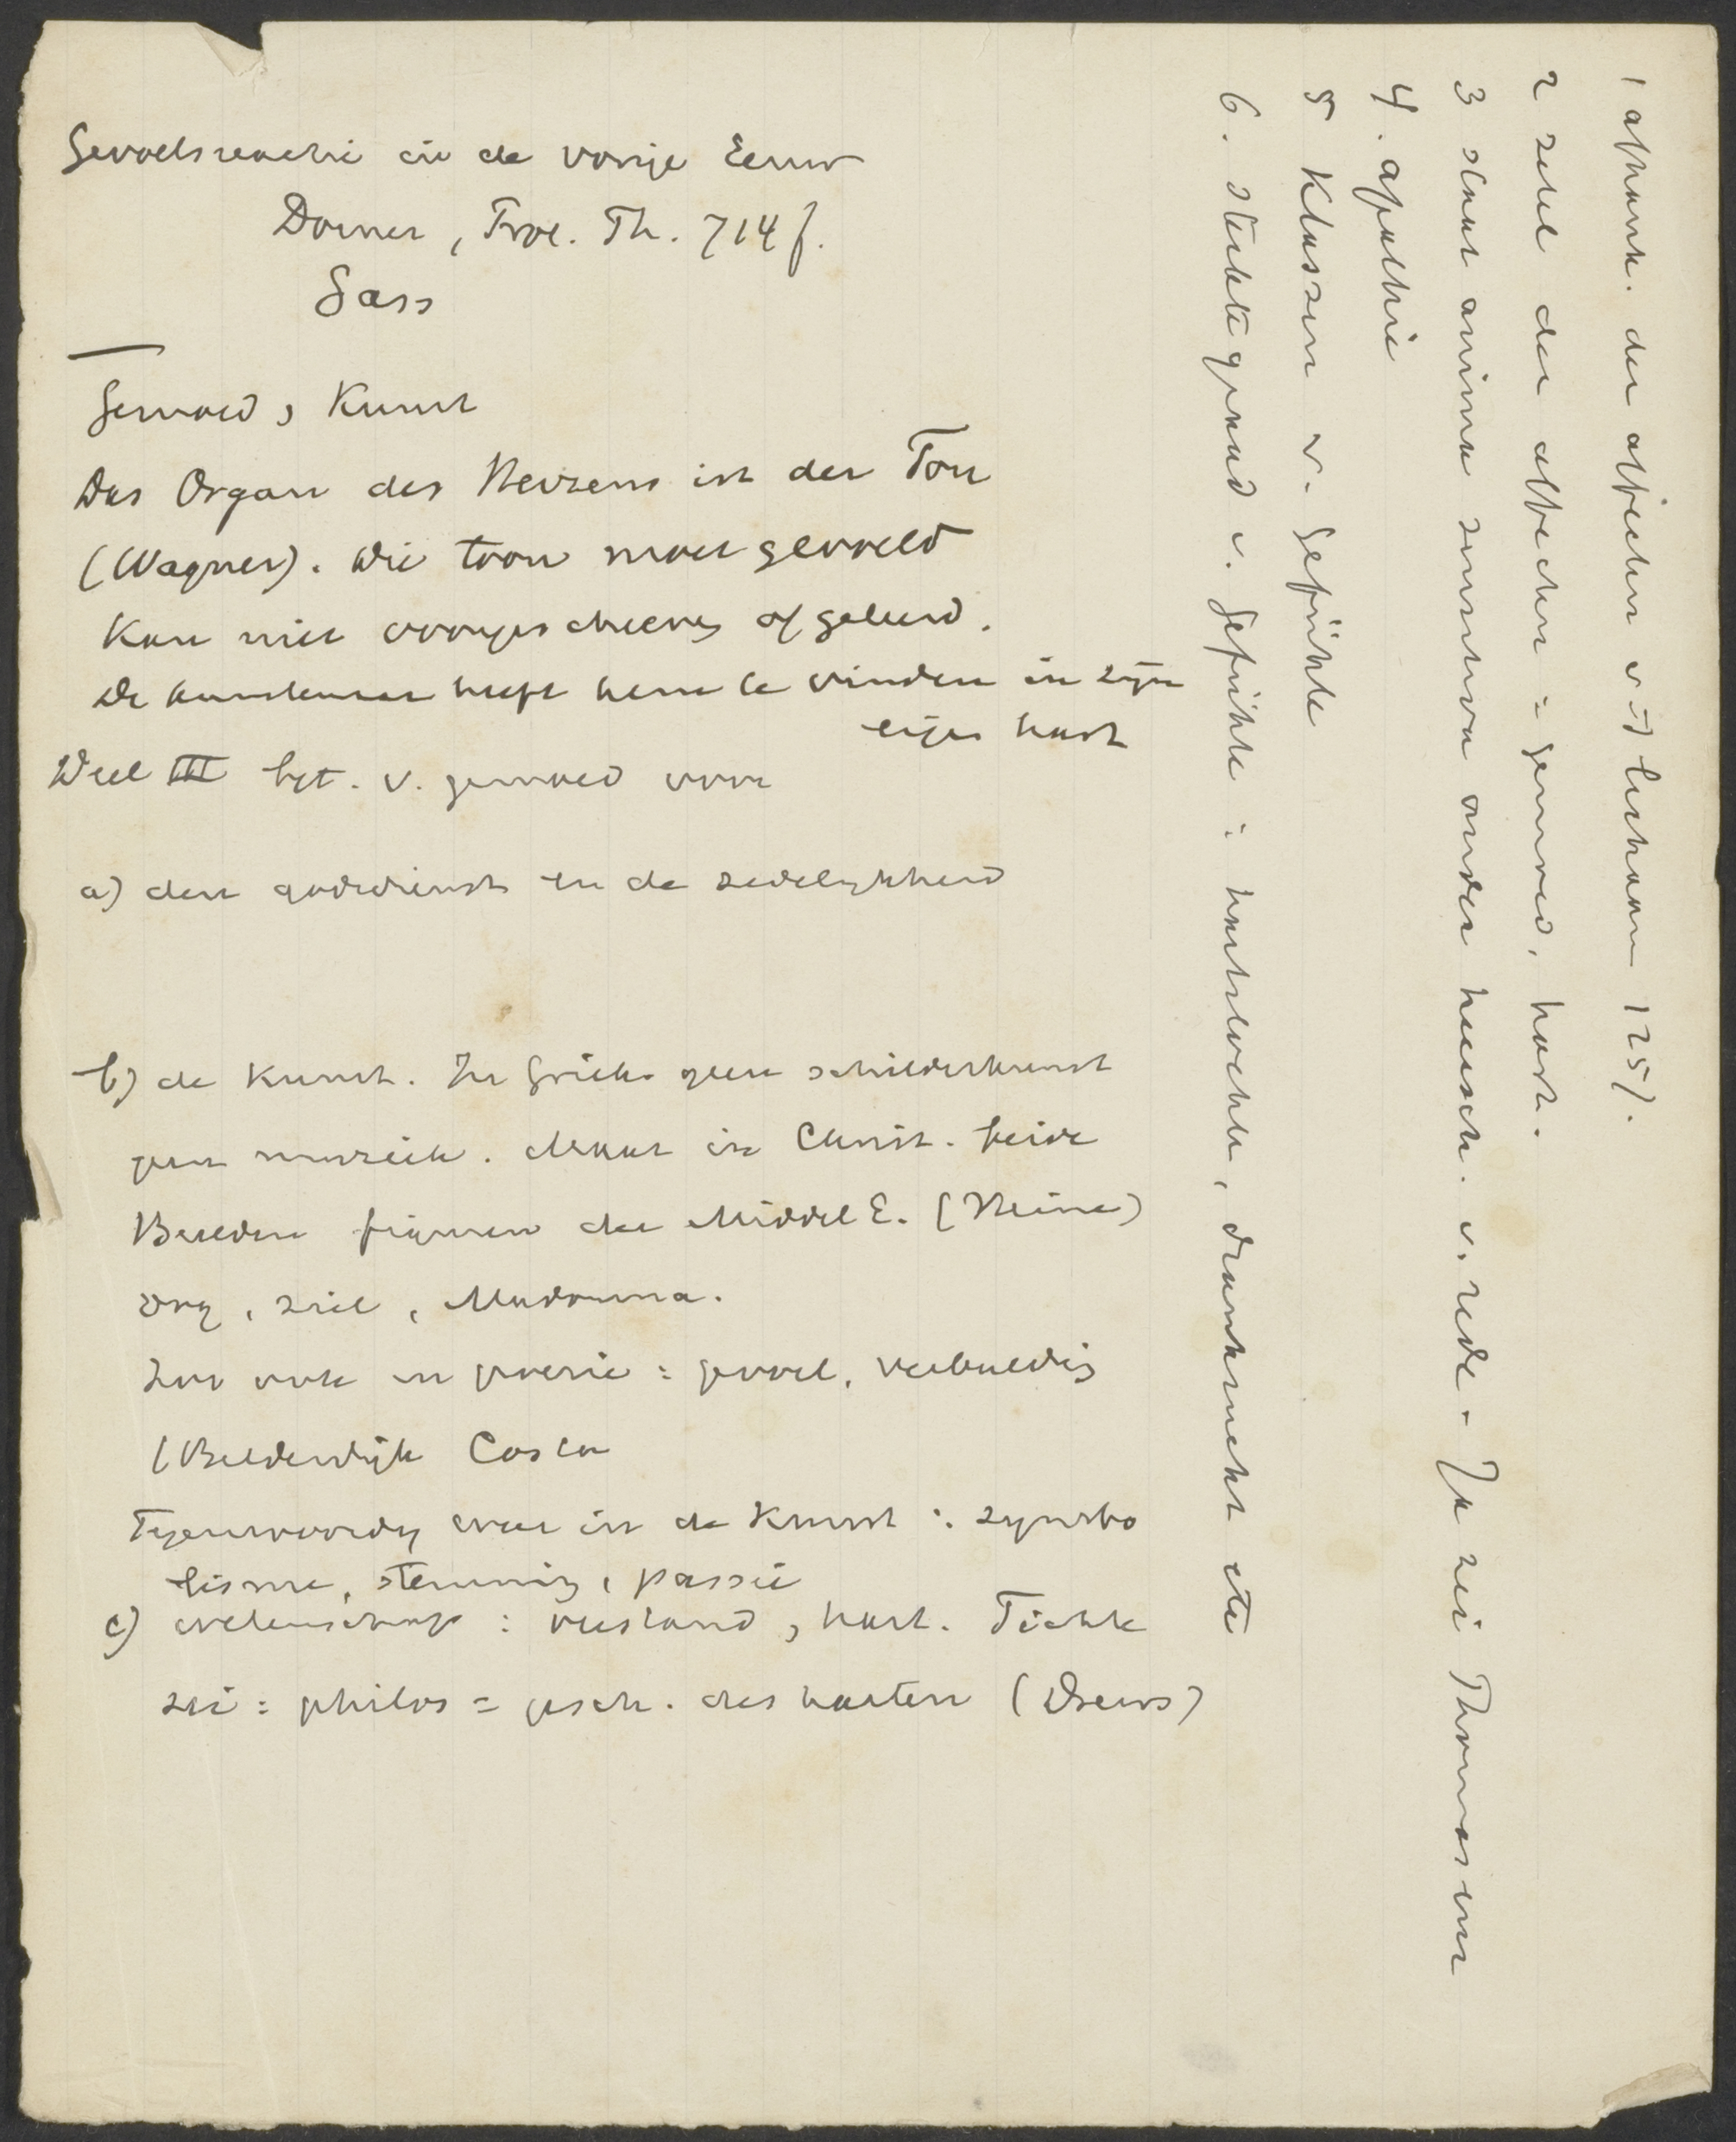 Gevoelsreactie in de vorige Eeuw
Dorner, Prot. Th. 714 f.
Gass
Gemoed, Kunst
Das Organ des Herzens ist der Ton
(Wagner). Die toon moet gevoeld
Kan niet voorgeschreven of geleerd.
De kunstenaar heeft hem te vinden in zijn
eigen hart
Deel III bet. v. gemoed voor
a) den godsdienst en de zedelijkheid
b) de Kunst. In Griek. geen schilderkunst
geen muziek. Maar in Christ. beide
figuren der Middel E. (Heine)
ziel, Madonna.
Zoo ook in poezie: gevoel, verbeeldig
(Bilderdijk Costa
Tegenwoordig weer in de Kunst: symbo
lisme, stemming, passie
c) wetenschap: verstand, hart. Fichte
zei: philos = gesch. des harten (Drews)
1 afhank. der affecten v. 't lichaam 125).
2 zetel der affecten: gemoed, hart.
3 staat anima sensitiva onder heersch. v. rede. - Ja zei Thomas en
4. apathie
5 Klassen v. Gefühle
6. v. Gefühle: , etc